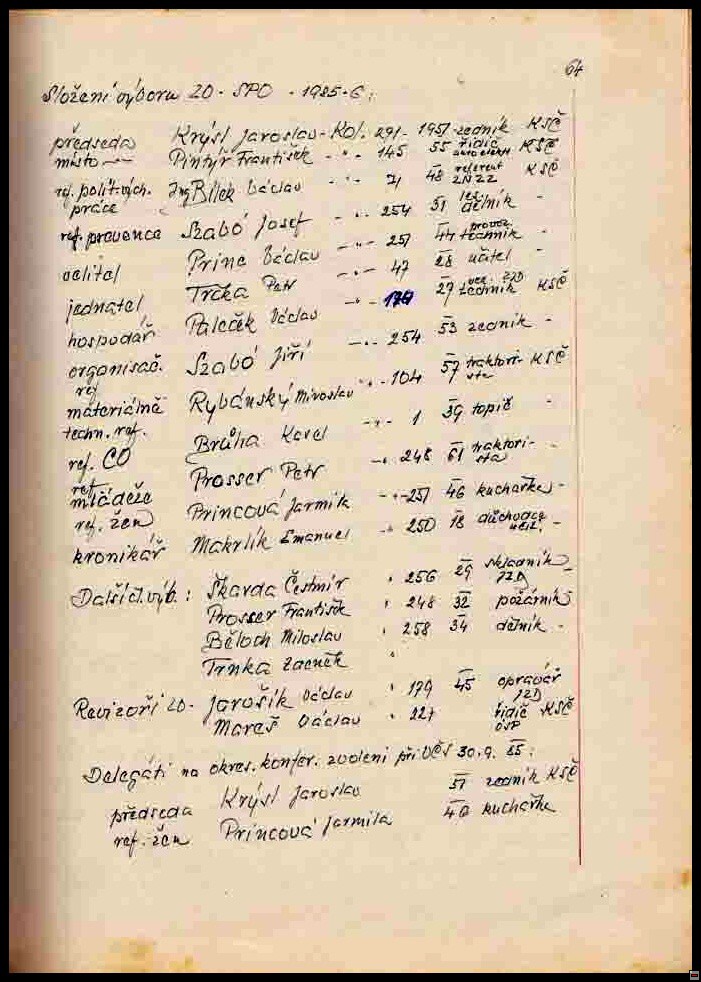 64
Složení výboru ZO - SPO - 1985-6:
předseda Krýsl Jaroslav - Kol. 291 - 1951 zedník KSČ
místo -"- Pintýr František -"- 145 55 řidič KSČ
ref. polit. vých. práce Ing Bílek Václav -"- 71 48 referent ZNZZ KSČ
ref. prevence Szabó Josef -"- 254 51 les. dělník -
velitel Princ Václav -"- 251 44 provoz. technik -
jednatel Trčka Petr -"- 47 28 učitel -
hospodář Paleček Václav -"- 27 ved. JZD technik KSČ
organisač. ref Szabó Jiří -"- 254 53 zedník -
materiálně techn. ref. Rybánský Miroslav -"- 104 57 traktorista KSČ
ref. CO Brůha Karel -"- 1 39 topič -
ref mládeže Prosser Petr -"- 248 61 traktorista -
ref. žen Princová Jarmila -"- 251 46 kuchařka -
kronikář Makrlík Emanuel -"- 250 18 důchodce učit. -
Další čl. výb.: Škarda Čestmír " 256 29 skladník JZD -
Prosser František " 248 32 požárník
Běloch Miloslav " 258 34 dělník -
Trnka Zdeněk "
Revizoři ZO - Jarošík Václav " 179 45 opravář JZD
Mareš Václav " 227 řidič OSP KSČ
Delegáti na okres. konfer. zvoleni při VČS 30.9. 85:
předseda Krýsl Jaroslav 51 zedník KSČ
ref. žen Princová Jarmila 46 kuchařka